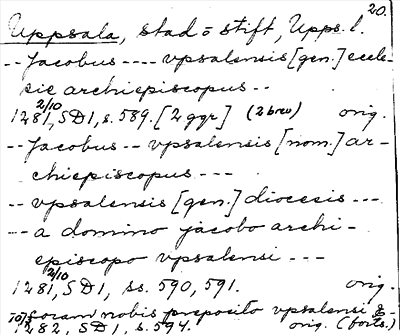 20.
Uppsala, stad o stift, Upps. l.
-- Jacobus ---- vpsalensis [gen.] eccle-
sie archiepiscopus --
2/10
1281, SD 1, s. 589. [2 ggr] (2 brev) orig.
-- Jacobus -- vpsalensis [nom.] ar-
chiepiscopus ---
-- vpsalensis [gen.] diocesis ---
-- a domino jacobo archi-
episcopo vpsalensi ---
2/10
1281, SD 1, ss. 590, 591. orig.
coram nobis preposito vpsalensi &-
1282, SD 1, s. 594. orig. (forts.)